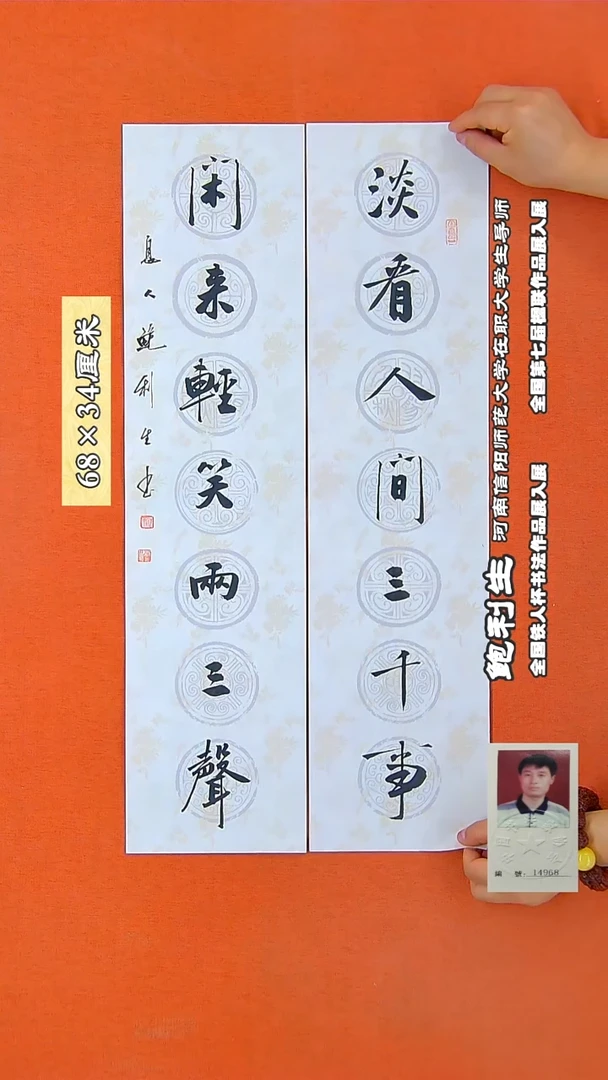 淡看人间三千事
闲来輕笑兩三聲
息人鮑利生书
68×34厘米
鲍利生
河南信阳师范大学在职大学生导师
全国第七届楹联作品展入展
全国铁人杯书法作品展入展
編 號：14968